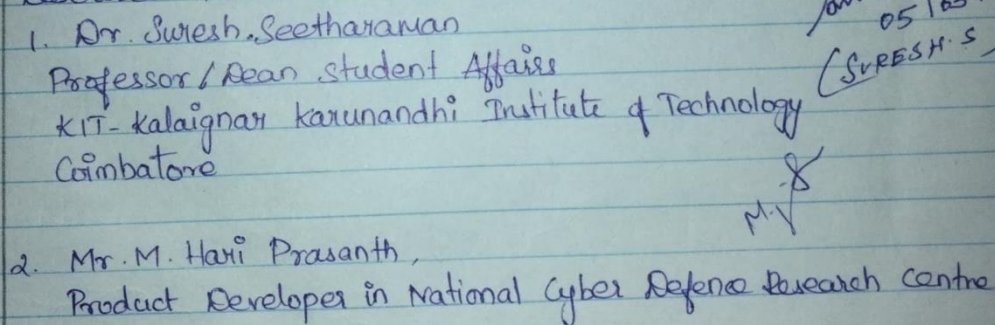 1. Dr. Suresh.Seetharaman
05
Professor / Dean Student Affairs
(SURESH.S
KIT-Kalaignar Karunandhi Institute of Technology
Coimbatore
M.V
2. Mr. M. Hari Prasanth,
Product Developer in National Cyber Defence Research Centre